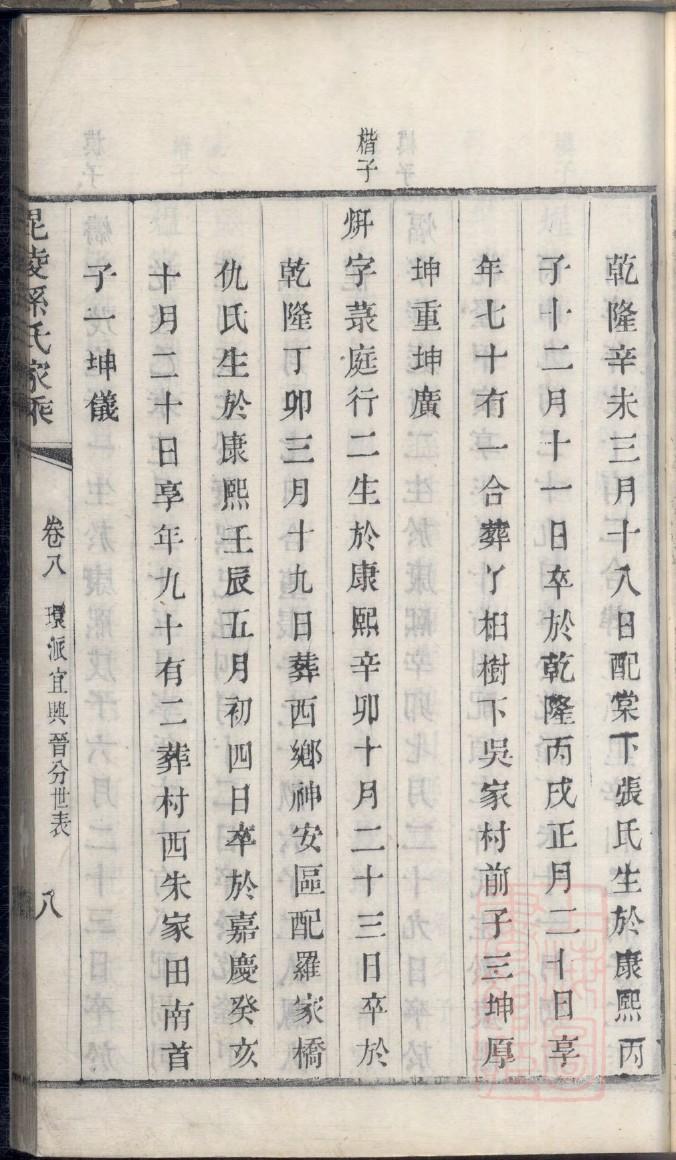 乾隆辛未三月十八日配棠下張氏生於康熙丙
子十二月十一日卒於乾隆丙戌正月二十日享
年七十有一合葬丫桕樹下吳家村前子三坤厚
坤重坤廣
楷子
烶字菉庭行二生於康熙辛卯十月二十三日卒於
乾隆丁卯三月十九日葬西鄉神安區配羅家橋
仇氏生於康熙壬辰五月初四日卒於嘉慶癸亥
十月二十日享年九十有二葬村西朱家田南首
子一坤儀
毘陵孫氏家乘
卷八 環派宜興晉分世表 八